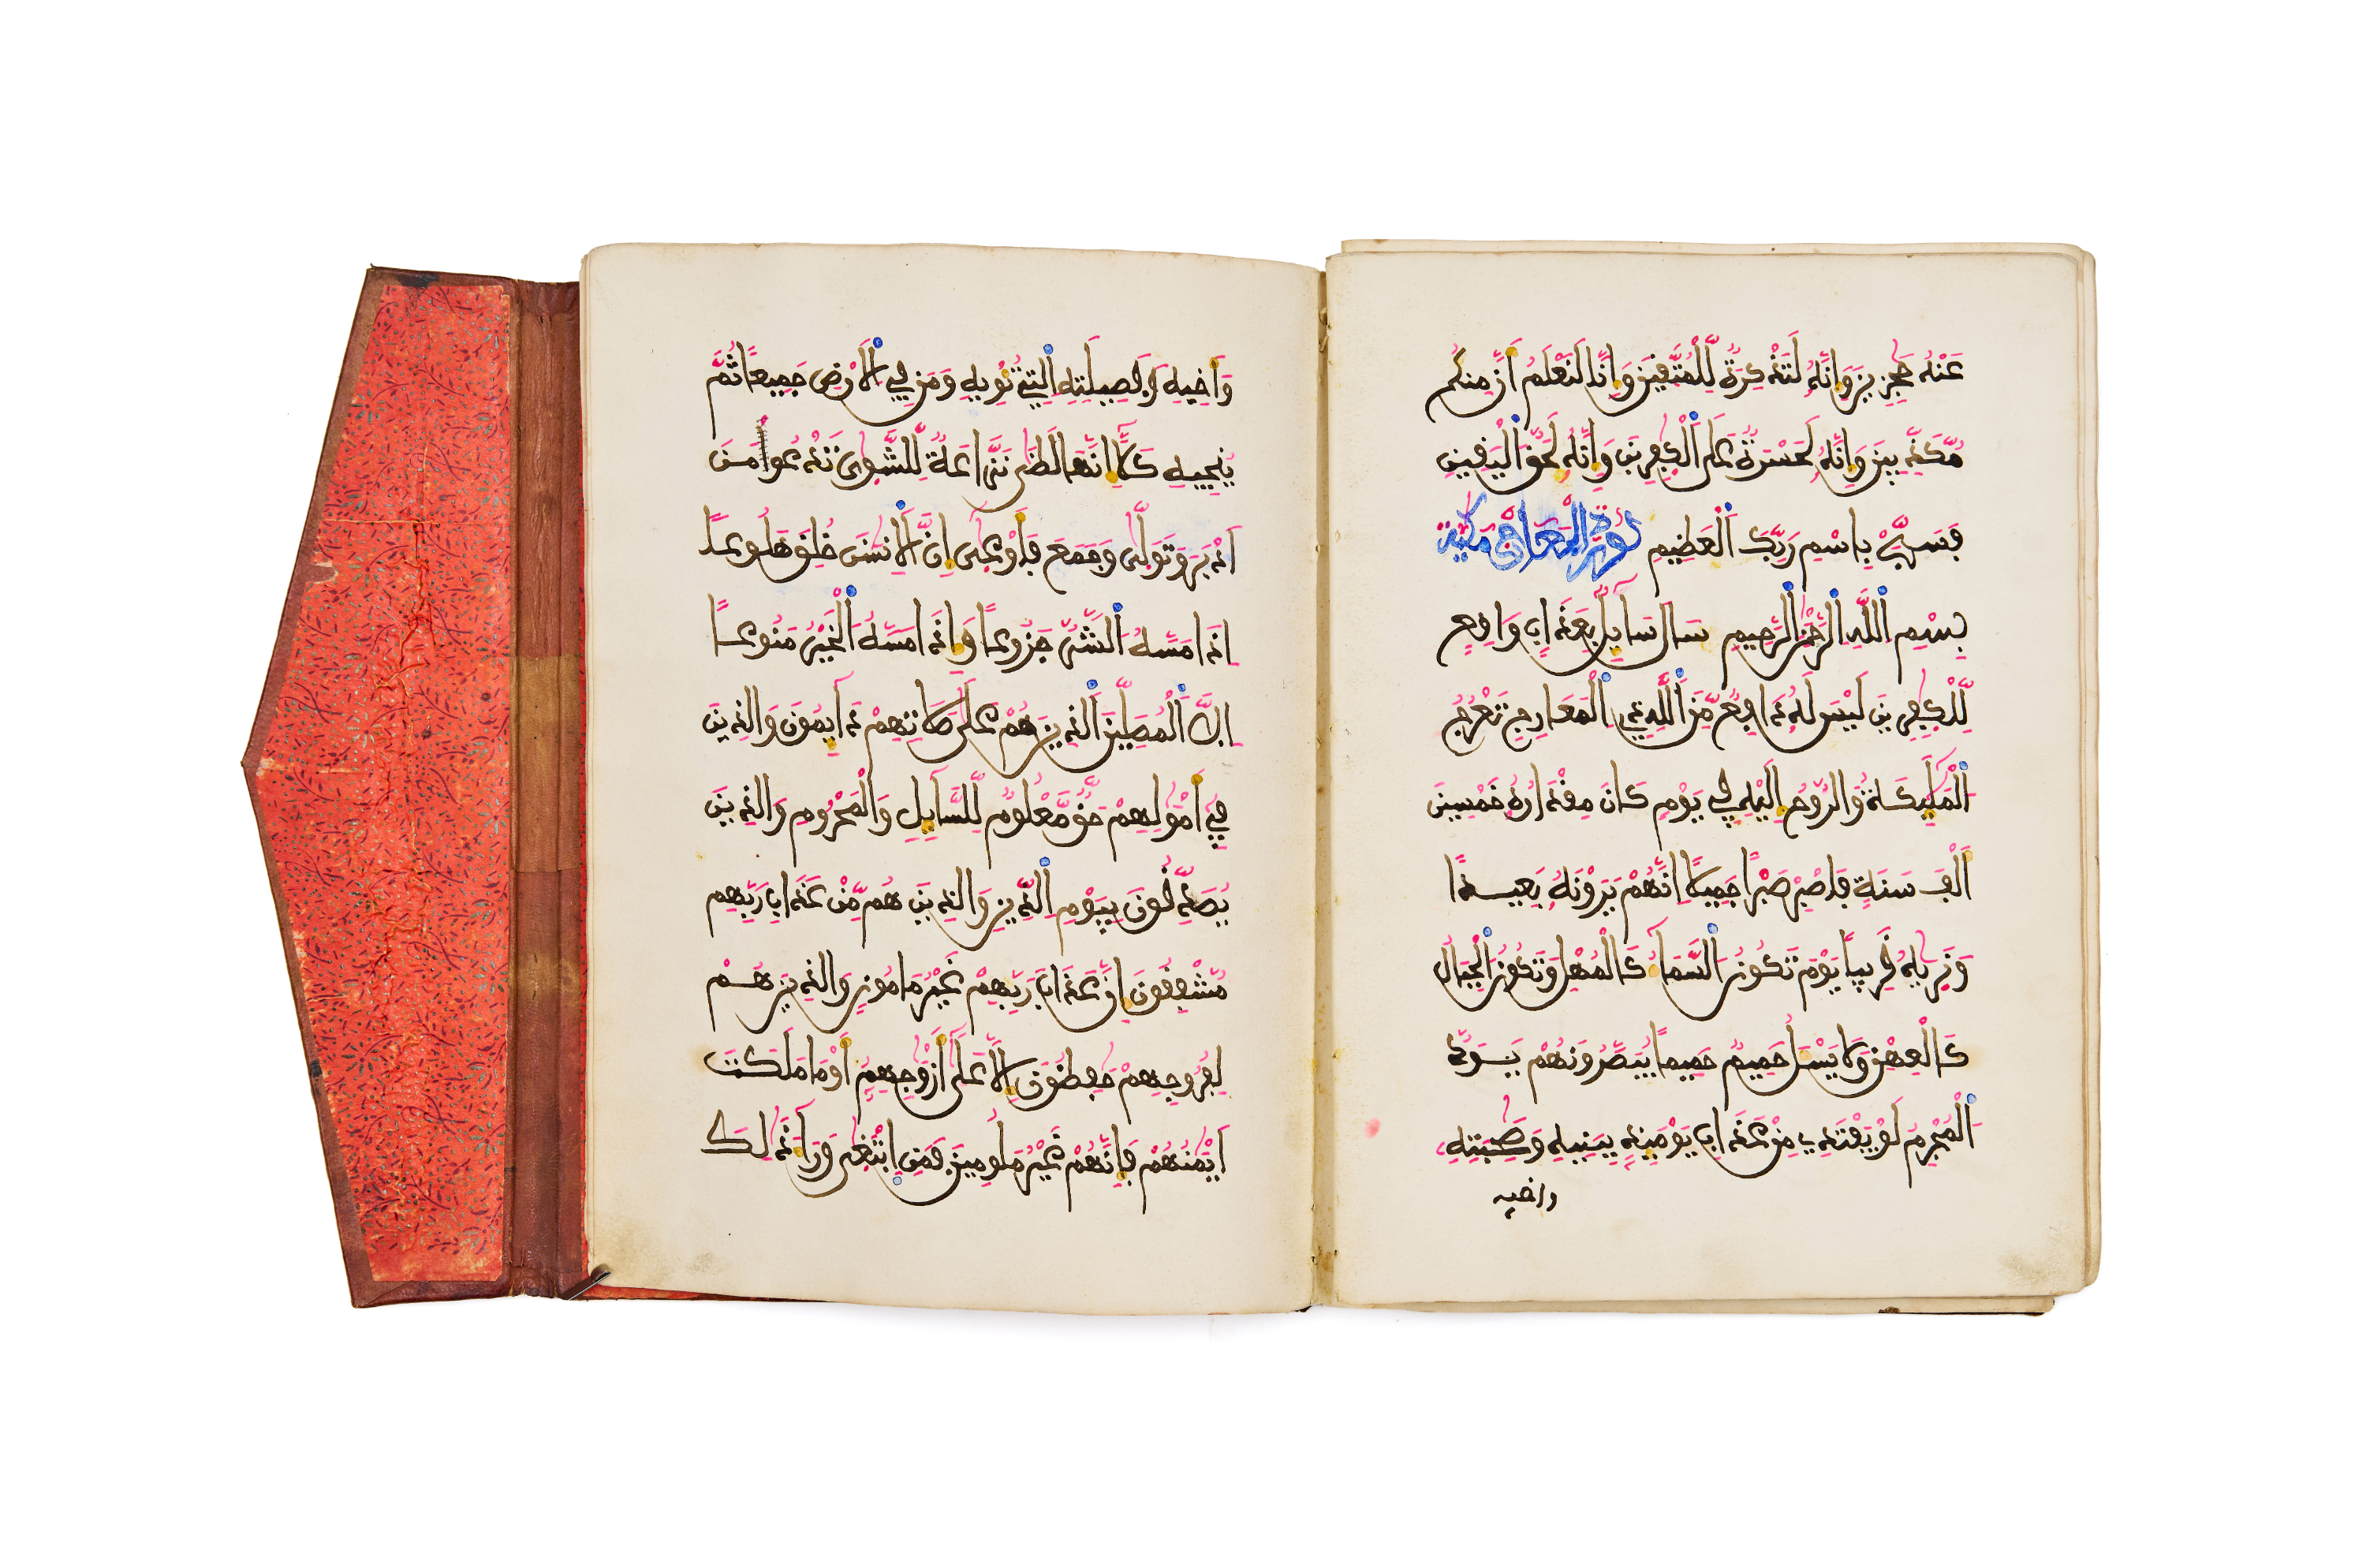 عَنْهُ حَٰجِزِينَ وَإِنَّهُۥ لَتَذْكِرَةٌ لِّلْمُتَّقِينَ وَإِنَّا لَنَعْلَمُ أَنَّ مِنكُم
مُّكَذِّبِينَ وَإِنَّهُۥ لَحَسْرَةٌ عَلَى اَ۬لْكٰفِرِينَ وَإِنَّهُۥ لَحَقُّ اُ۬لْيَقِينِ
فَسَبِّحْ بِاسْمِ رَبِّكَ اَ۬لْعَظِيمِ سورة المعارج مكية
بِسْمِ اِ۬للَّهِ اِ۬لرَّحْمَٰنِ اِ۬لرَّحِيمِ سَالَ سَآئِلٌۢ بِعَذَابٍ وَاقِعٍ
لِّلْكٰفِرِينَ لَيْسَ لَهُۥ دَافِعٌ مِّنَ اَ۬للَّهِ ذِي اِ۬لْمَعَارِجِ تَعْرُجُ
اُ۬لْمَلَٰٓئِكَةُ وَالرُّوحُ إِلَيْهِ فِي يَوْمٍ كَانَ مِقْدَارُهُۥ خَمْسِينَ
أَلْفَ سَنَةٍ فَاصْبِرْ صَبْراً جَمِيلاً إِنَّهُمْ يَرَوْنَهُۥ بَعِيداً
وَنَرٰيهُ قَرِيباً يَوْمَ تَكُونُ اُ۬لسَّمَآءُ كَالْمُهْلِ وَتَكُونُ اُ۬لْجِبَالُ
كَالْعِهْنِ وَلَا يَسْـَٔلُ حَمِيمٌ حَمِيماً يُبَصَّرُونَهُمْ يَوَدُّ
اُ۬لْمُجْرِمُ لَوْ يَفْتَدِي مِنْ عَذَابِ يَوْمَئِذٍۢ بِبَنِيهِ وَصَٰحِبَتِهِۦ
واخيه
وَأَخِيهِ وَفَصِيلَتِهِ اِ۬لتِي تُـْٔوِيهِ وَمَن فِي اِ۬لَارْضِ جَمِيعاً ثُمَّ
يُنجِيهِ كَلَّآ إِنَّهَا لَظَىٰ نَزَّاعَةٌ لِّلشَّوٰى تَدْعُوا مَنَ
اَدْبَرَ وَتَوَلَّىٰ وَجَمَعَ فَأَوْعَىٰٓ إِنَّ اَ۬لِانسَٰنَ خُلِقَ هَلُوعاً
اِذَا مَسَّهُ اُ۬لشَّرُّ جَزُوعاً وَإِذَا مَسَّهُ اُ۬لْخَيْرُ مَنُوعاً
اِلَّا اَ۬لْمُصَلِّينَ اَ۬لذِينَ هُمْ عَلَىٰ صَلَاتِهِمْ دَآئِمُونَ وَالذِينَ
فِيٓ أَمْوَٰلِهِمْ حَقٌّ مَّعْلُومٌ لِّلسَّآئِلِ وَالْمَحْرُومِ وَالذِينَ
يُصَدِّقُونَ بِيَوْمِ اِ۬لدِّينِ وَالذِينَ هُم مِّنْ عَذَابِ رَبِّهِم
مُّشْفِقُونَ إِنَّ عَذَابَ رَبِّهِمْ غَيْرُ مَامُونٍ وَالذِينَ هُمْ
لِفُرُوجِهِمْ حَٰفِظُونَ إِلَّا عَلَىٰٓ أَزْوَٰجِهِمُۥٓ أَوْ مَا مَلَكَتَ
اَيْمَٰنُهُمْ فَإِنَّهُمْ غَيْرُ مَلُومِينَ فَمَنِ اِ۪بْتَغَىٰ وَرَآءَ ذَٰلِكَ